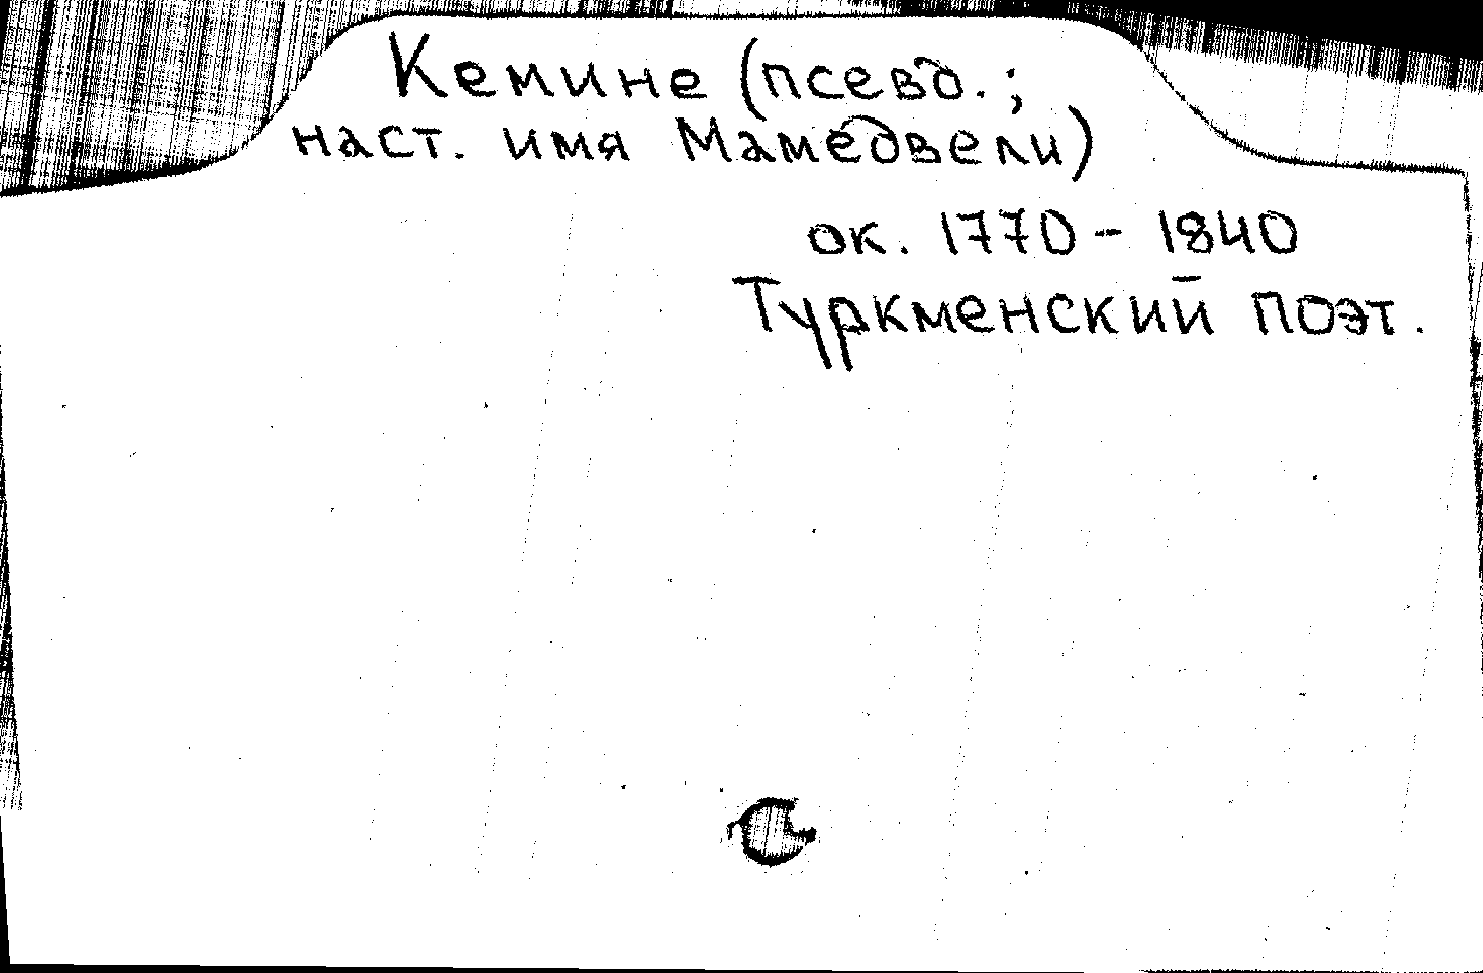 Кемине (псевд.;
наст. имя Мамедвели)
ок. 1770 - 1840
Туркменский поэт.